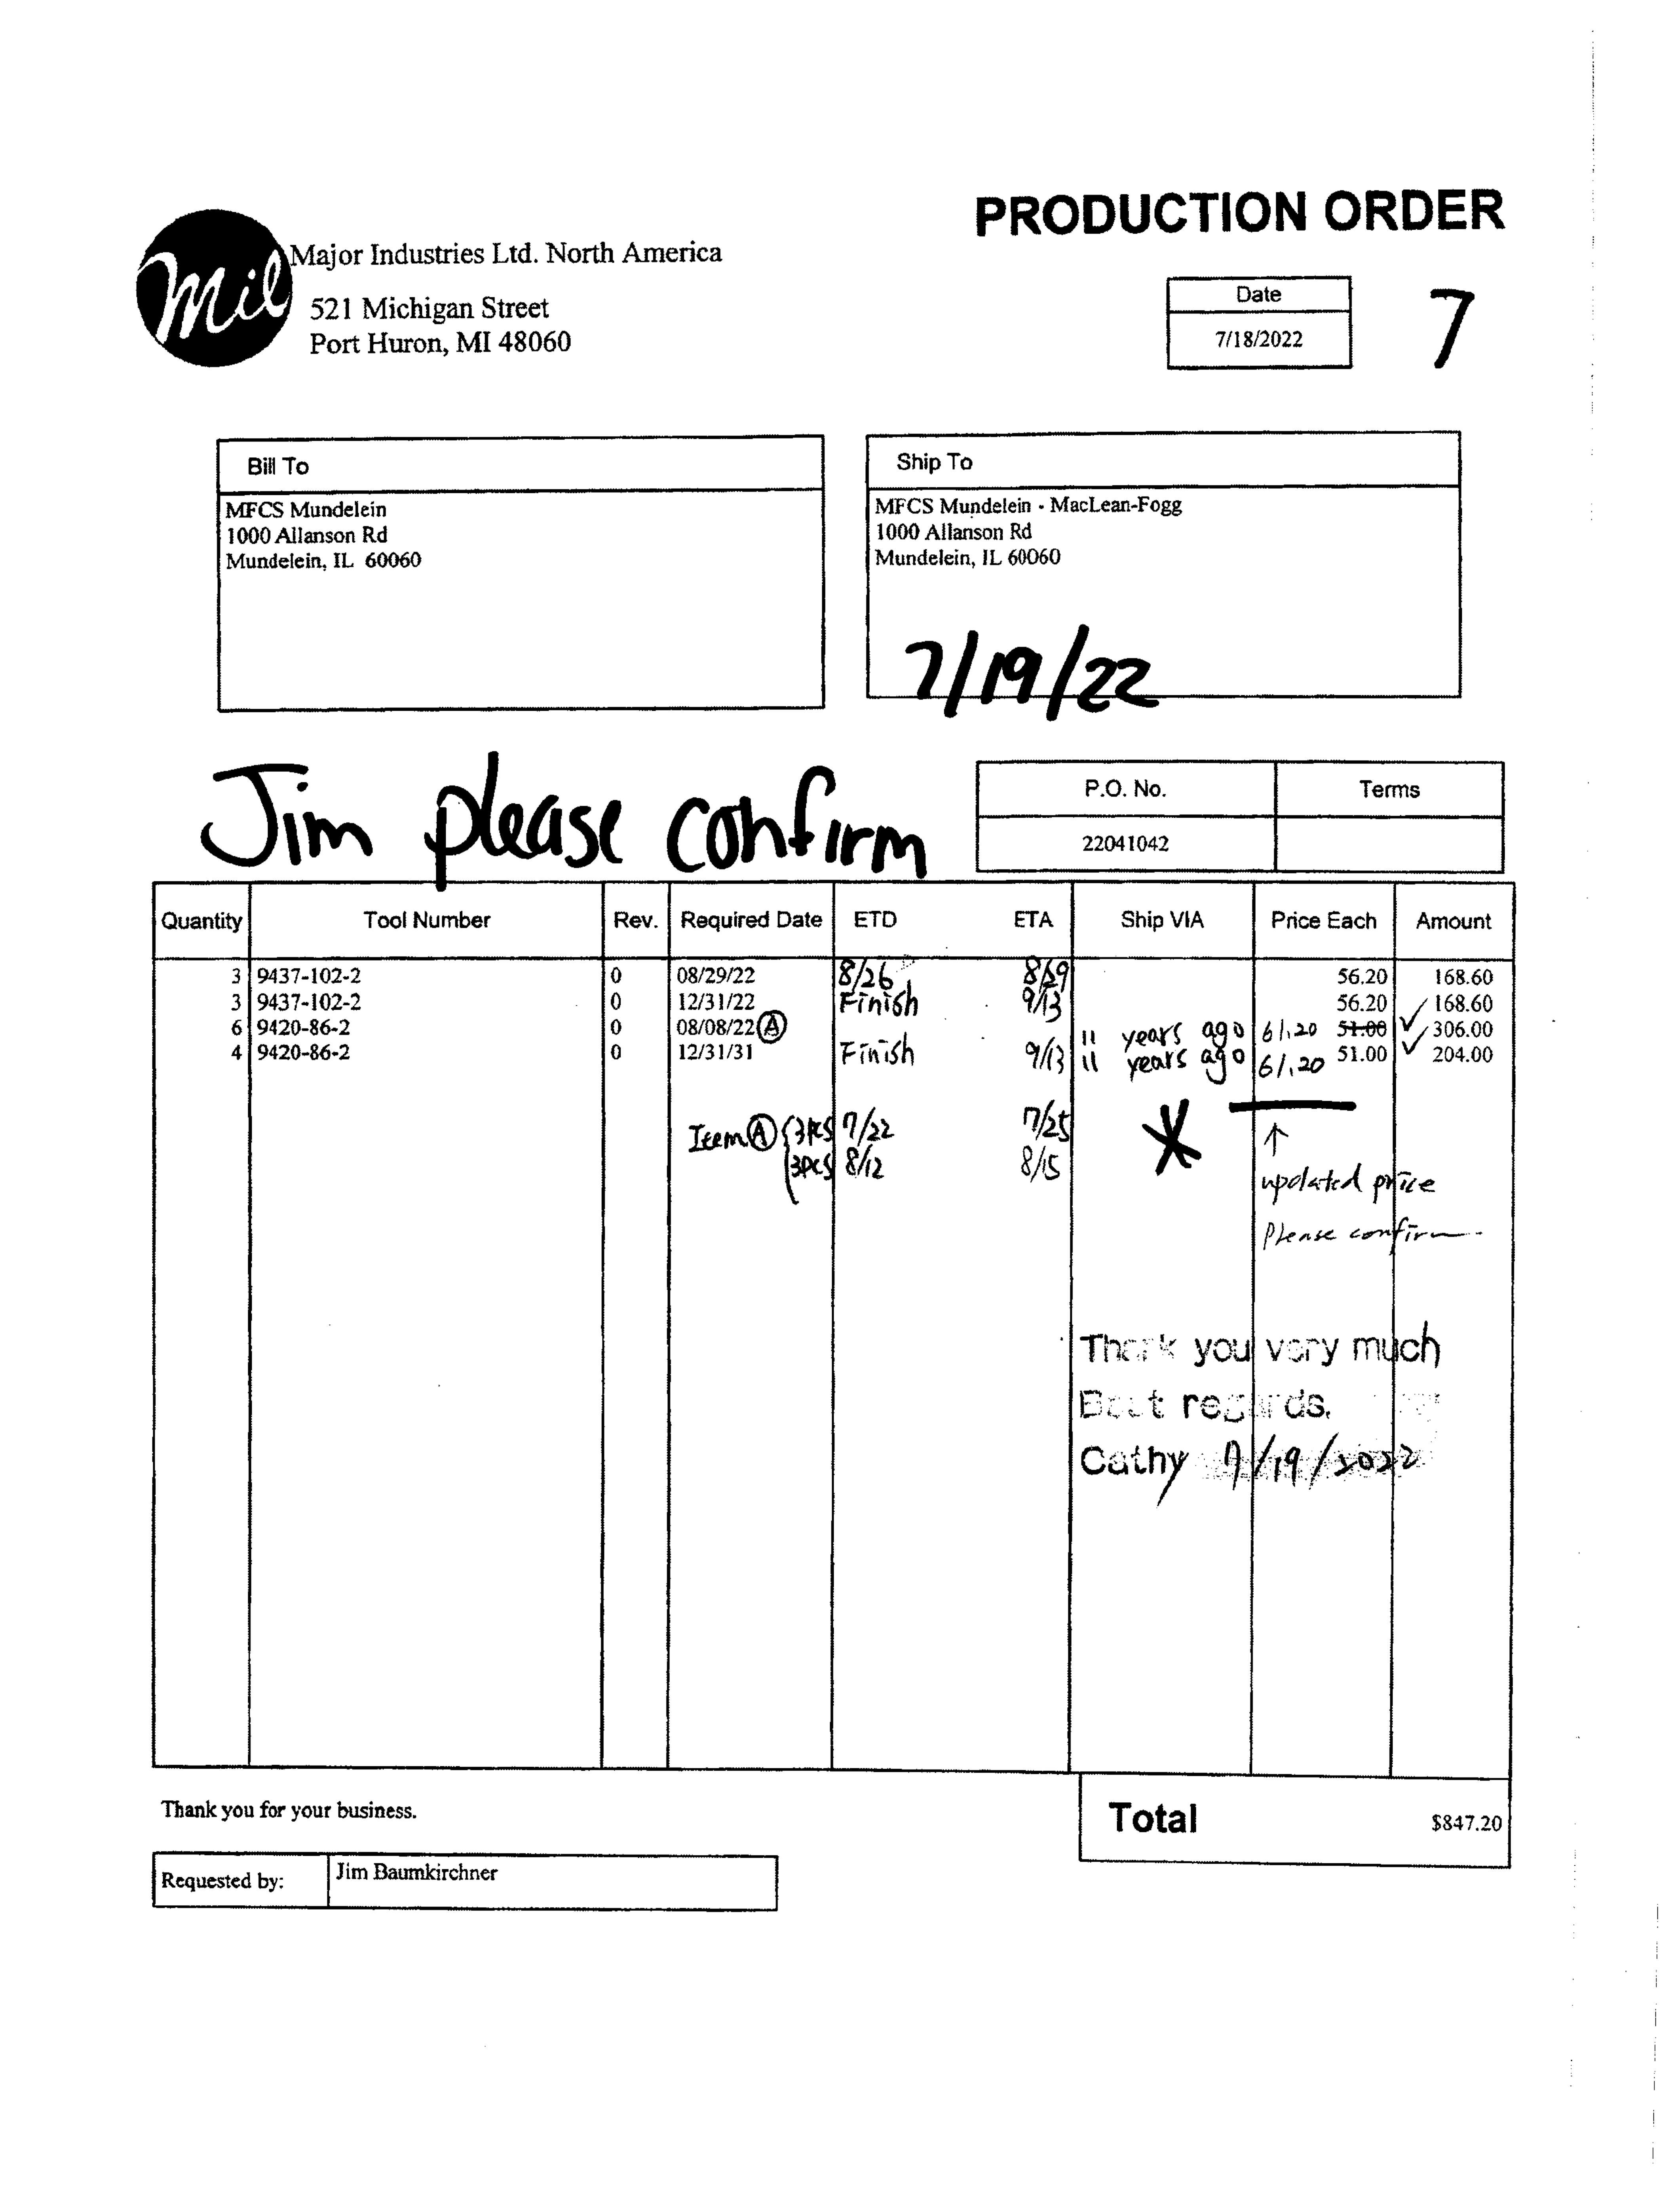 PRODUCTION ORDER
Mil
Major Industries Ltd. North America
521 Michigan Street
Port Huron, MI 48060
Date
7/18/2022
7
Bill To
MFCS Mundelein
1000 Allanson Rd
Mundelein, IL 60060
Ship To
MFCS Mundelein - MacLean-Fogg
1000 Allanson Rd
Mundelein, IL 60060
7/19/22
Jim please confirm
P.O. No. Terms
22041042
Quantity Tool Number Rev. Required Date ETD ETA Ship VIA Price Each Amount
3 9437-102-2 0 08/29/22 8/26 8/29 56.20 168.60
3 9437-102-2 0 12/31/22 Finish 9/13 56.20 168.60
6 9420-86-2 0 08/08/22 A 11 years ago 61.20 51.00 306.00
4 9420-86-2 0 12/31/31 Finish 9/13 11 years ago 61.20 51.00 204.00
Item A 3pcs 7/22 7/25
3pcs 8/12 8/15
updated price
Please confirm
Thank you very much
Best regards.
Cathy 7/19/2022
Thank you for your business.
Total $847.20
Requested by: Jim Baumkirchner